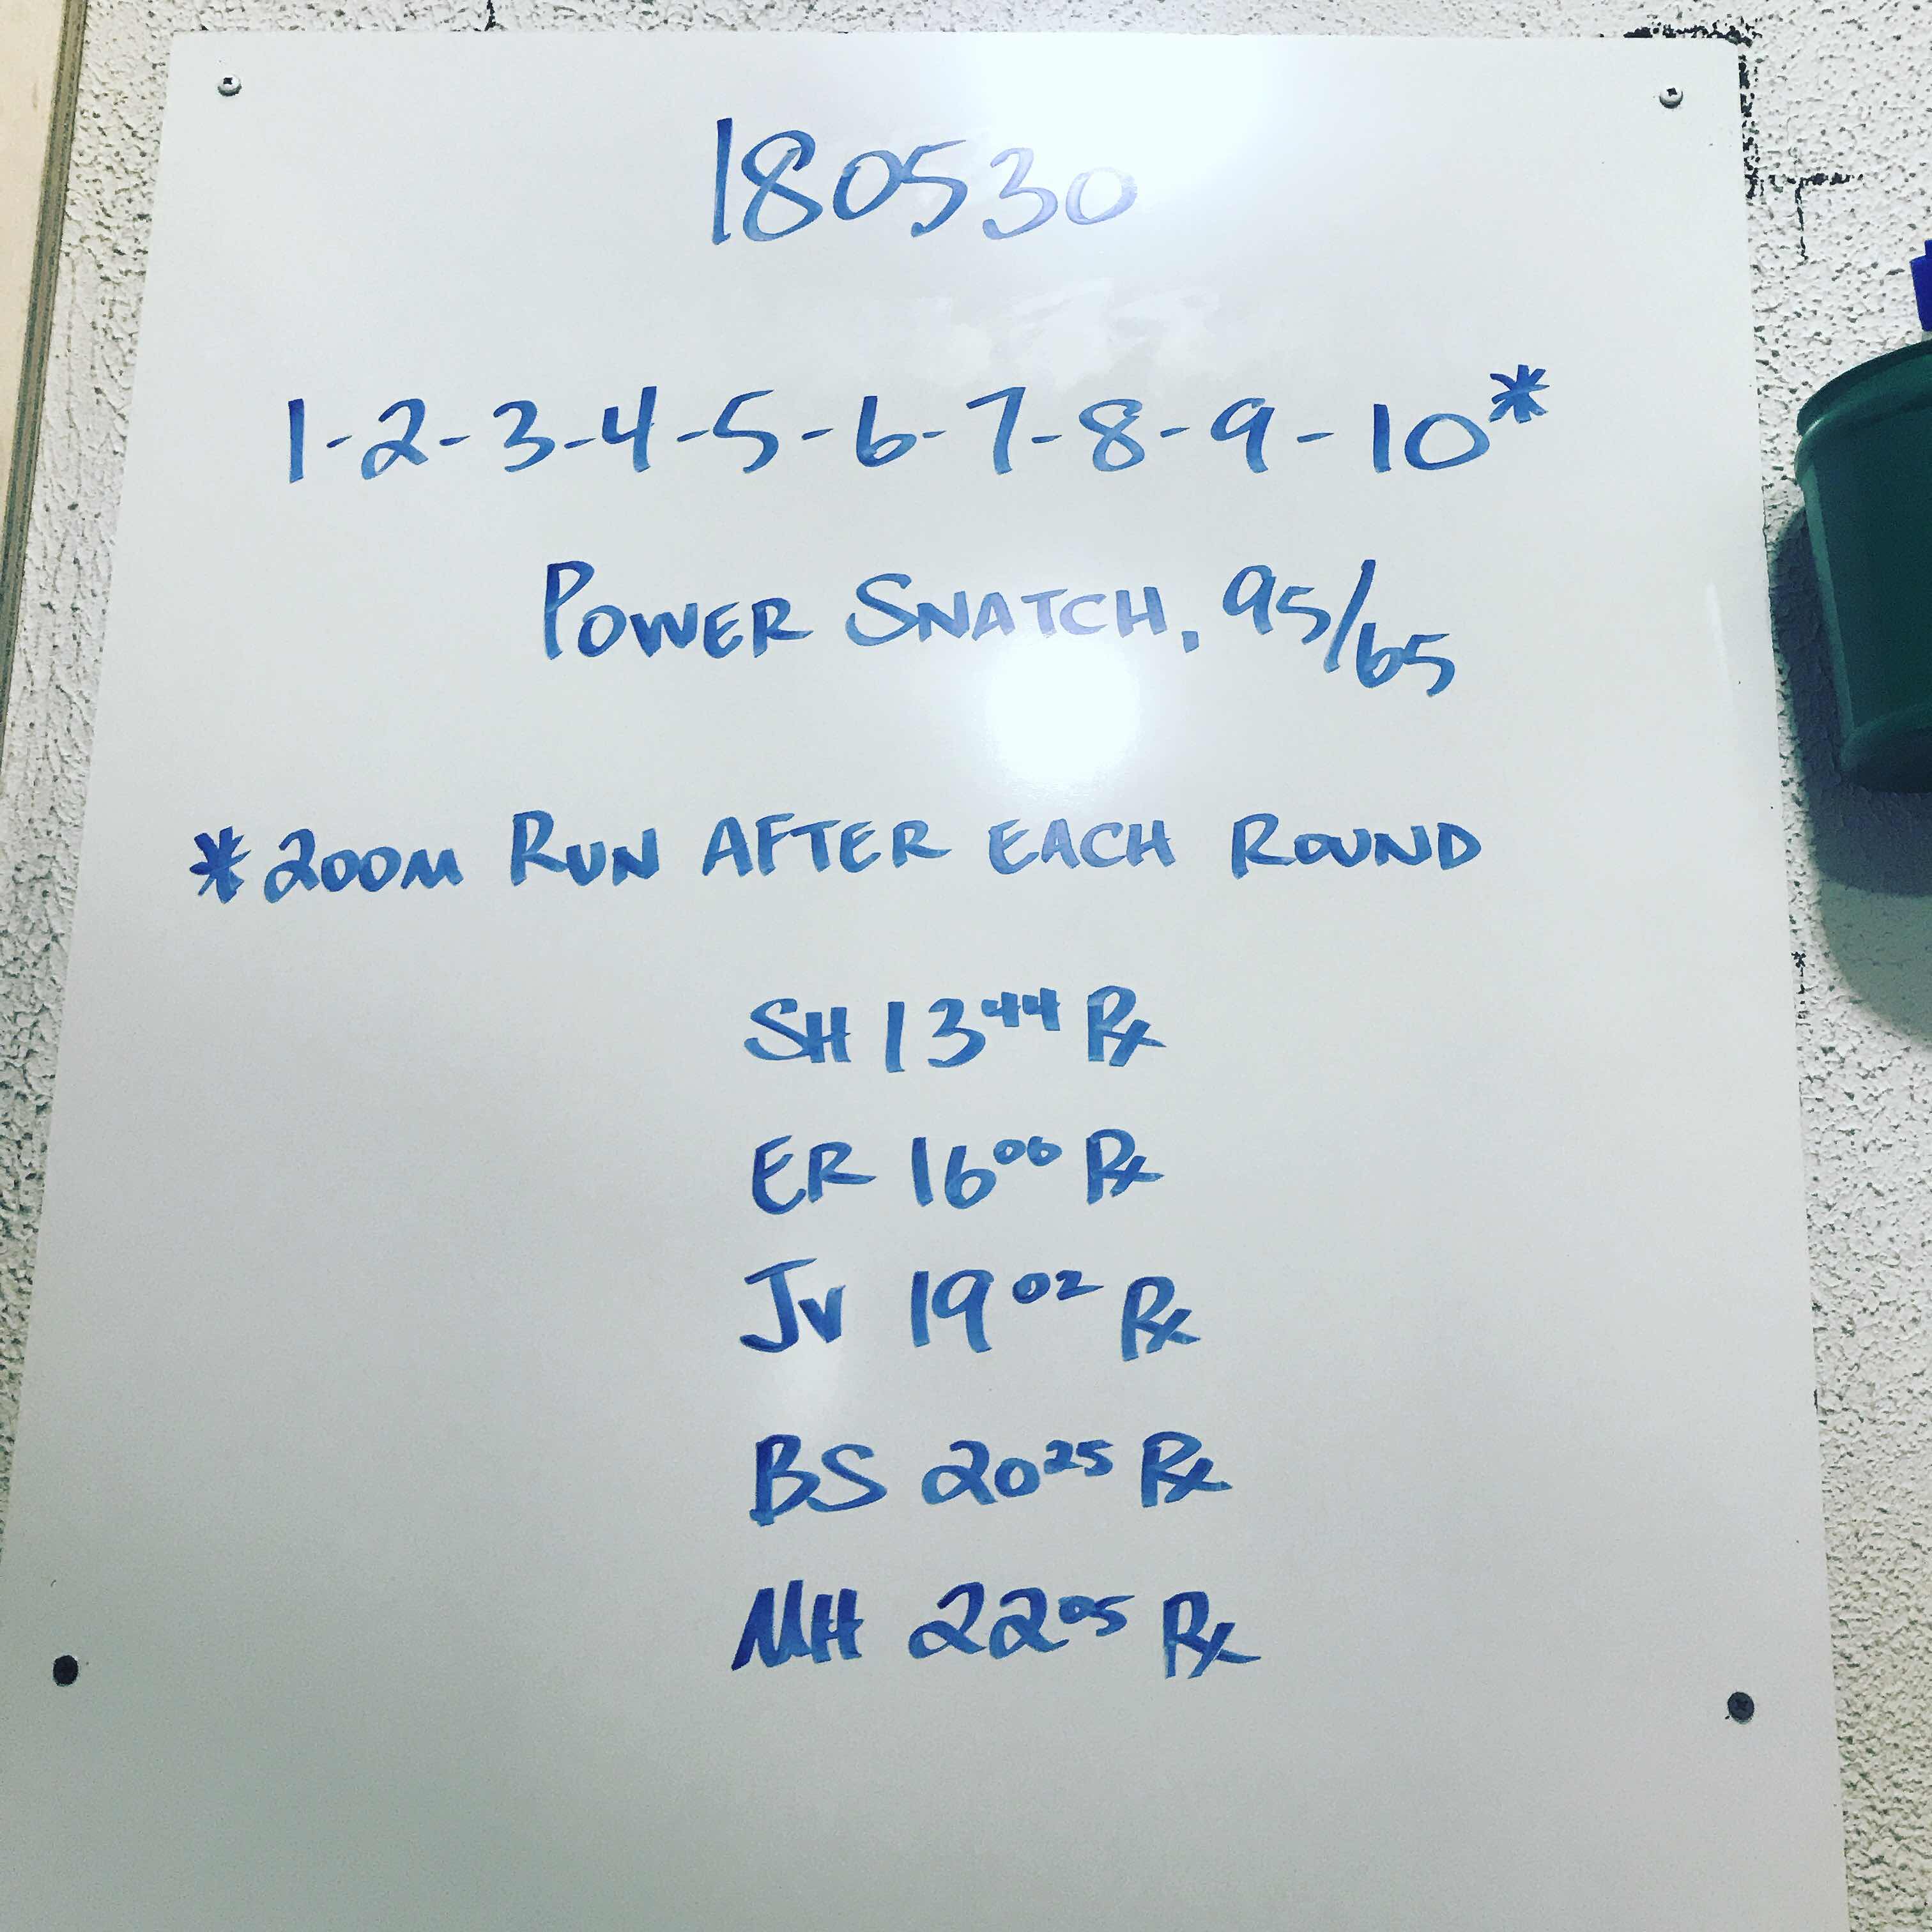 180530
1-2-3-4-5-6-7-8-9-10*
POWER SNATCH, 95/65
*200M RUN AFTER EACH ROUND
SH 13⁴⁴ Rx
ER 16⁰⁰ Rx
JV 19⁰² Rx
BS 20²⁵ Rx
MH 22⁰⁵ Rx